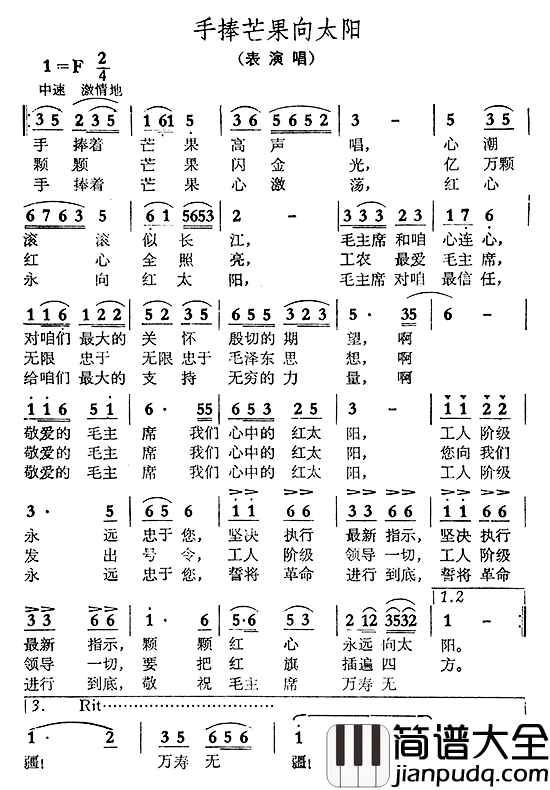 手捧芒果向太阳
(表演唱)
1=F 2/4
中速 激情地
35 235 161 5 36 5652 3 - 5 35
手 捧着 芒 果 高 声 唱, 心 潮
颗 颗 芒 果 闪 金 光, 亿 万颗
手 捧着 芒 果 心 激 荡, 红 心
6763 5 61 5653 2 - 333 23 1·7 6
滚 滚 似 长 江, 毛主席 和咱 心连心,
红 心 全 照 亮, 工农 最爱 毛主席,
永 向 红 太 阳, 毛主席 对咱 最信任,
116 122 35 32 553 232 5· 35 6 -
对咱们 最大的 关 怀 殷切的 期 望, 啊
无限 忠于 无限 忠于 毛泽东 思 想, 啊
给咱们 最大的 支 持 无穷的 力 量, 啊
116 51 6· 55 653 25 3 - 11 22
敬爱的 毛主 席 我们 心中的 红太 阳, 工人 阶级
敬爱的 毛主 席 我们 心中的 红太 阳, 您向 我们
敬爱的 毛主 席 我们 心中的 红太 阳, 工人 阶级
3· 5 656 5 11 66 33 55 11 66
永 远 忠于 您, 坚决 执行 最新 指示, 坚决 执行
发 出 号 令, 工人 阶级 领导 一切, 工人 阶级
永 远 忠于 您, 誓将 革命 进行 到底, 誓将 革命
1.2
33 66 1· 6 5·6 53 212 3532 1 -
最新 指示, 颗 颗 红 心 永远 向太 阳。
领导 一切, 要 把 红 旗 插遍 四 方。
进行 到底, 敬 祝 毛主 席 万寿 无
3. Rit
1· 2 35 656 1
疆! 万寿 无 疆!
简谱大全
jianpudq.com